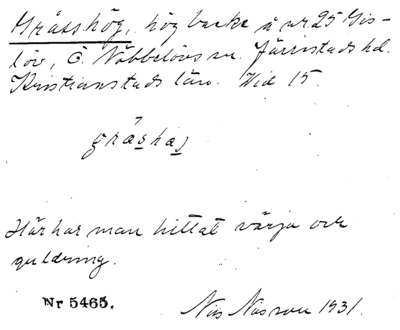 Gråsshög, hög backe å nr 25 Gis-
löv, Ö. Nöbbelövs sn. Järrestads hd.
Kristianstads län. Vid 15.
gråshǫj
Här har man hittat värja och
guldring.
Nr 5465. Nils Nilsson 1931.